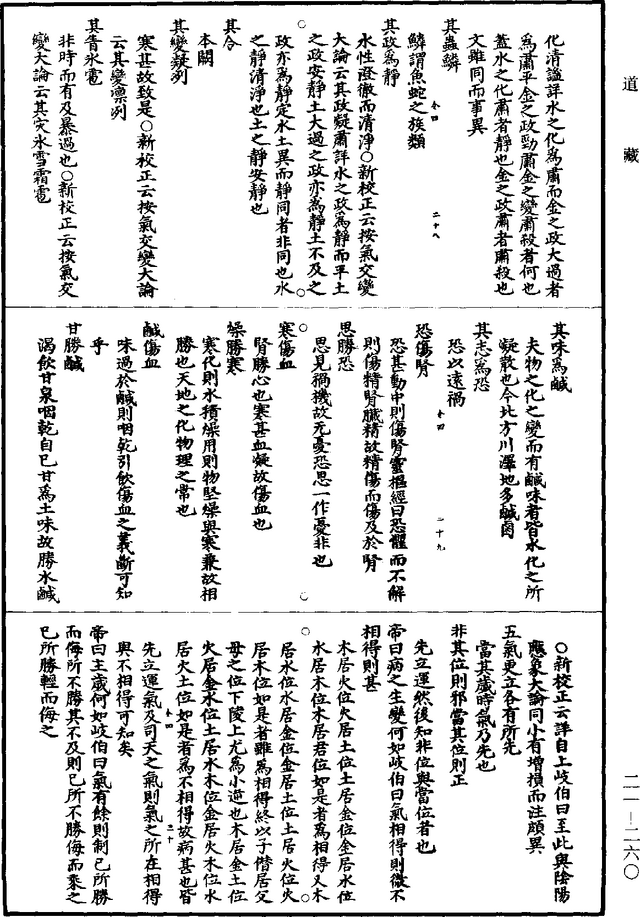 道藏
化清謐詳水之化為肅而金之政大過者
為肅平金之政勁肅金之變肅殺者何也
蓋水之化肅者靜也金之政肅者肅殺也
文雖同而事異
其蟲鱗
鱗謂魚蛇之族類
其政為靜
水性澄徹而清淨○新校正云按氣交變
大論云其政凝肅詳水之政為靜而平土
之政安靜土大過之政亦為靜土不及之
政亦為靜定水土異而靜同者非同也水
之靜清淨也土之靜安靜也
其令
本闕
其變凝冽
寒甚故致是○新校正云按氣交變大論
云其變凓冽
其眚氷雹
非時而有及暴過也○新校正云按氣交
變大論云其災氷雪霜雹
其味為鹹
夫物之化之變而有鹹味者皆水化之所
凝散也今北方川澤地多鹹鹵
其志為恐
恐以遠禍
恐傷腎
恐甚動中則傷腎靈樞經曰恐懼而不解
則傷精腎臟精故精傷而傷及於腎
思勝恐
思見禍機故无憂恐思一作憂非也
寒傷血
腎勝心也寒甚血凝故傷血也
燥勝寒
寒化則水積燥用則物堅燥與寒兼故相
勝也天地之化物理之常也
鹹傷血
味過於鹹則咽乾引飲傷血之義斷可知
乎
甘勝鹹
渴飲甘泉咽乾自已甘為土味故勝水鹹
○新校正云詳自上岐伯曰至此與陰陽
應象大論同小有增損而注頗異
五氣更立各有所先
當其歲時氣乃先也
非其位則邪當其位則正
先立運然後知非位與當位者也
帝曰病之生變何如岐伯曰氣相得則微不
相得則甚
木居火位火居土位土居金位金居水位
水居木位木居君位如是者為相得又木
居水位水居金位金居土位土居火位火
居木位如是者雖為相得終以子僭居父
母之位下陵上尤為小逆也木居金土位
火居金水位土居水木位金居火木位水
居火土位如是者為不相得故病甚也皆
先立運氣及司天之氣則氣之所在相得
與不相得可知矣
帝曰主歲何如岐伯曰氣有餘則制已所勝
而侮所不勝其不及則已所不勝侮而乘之
已所勝輕而侮之
二一—二六〇